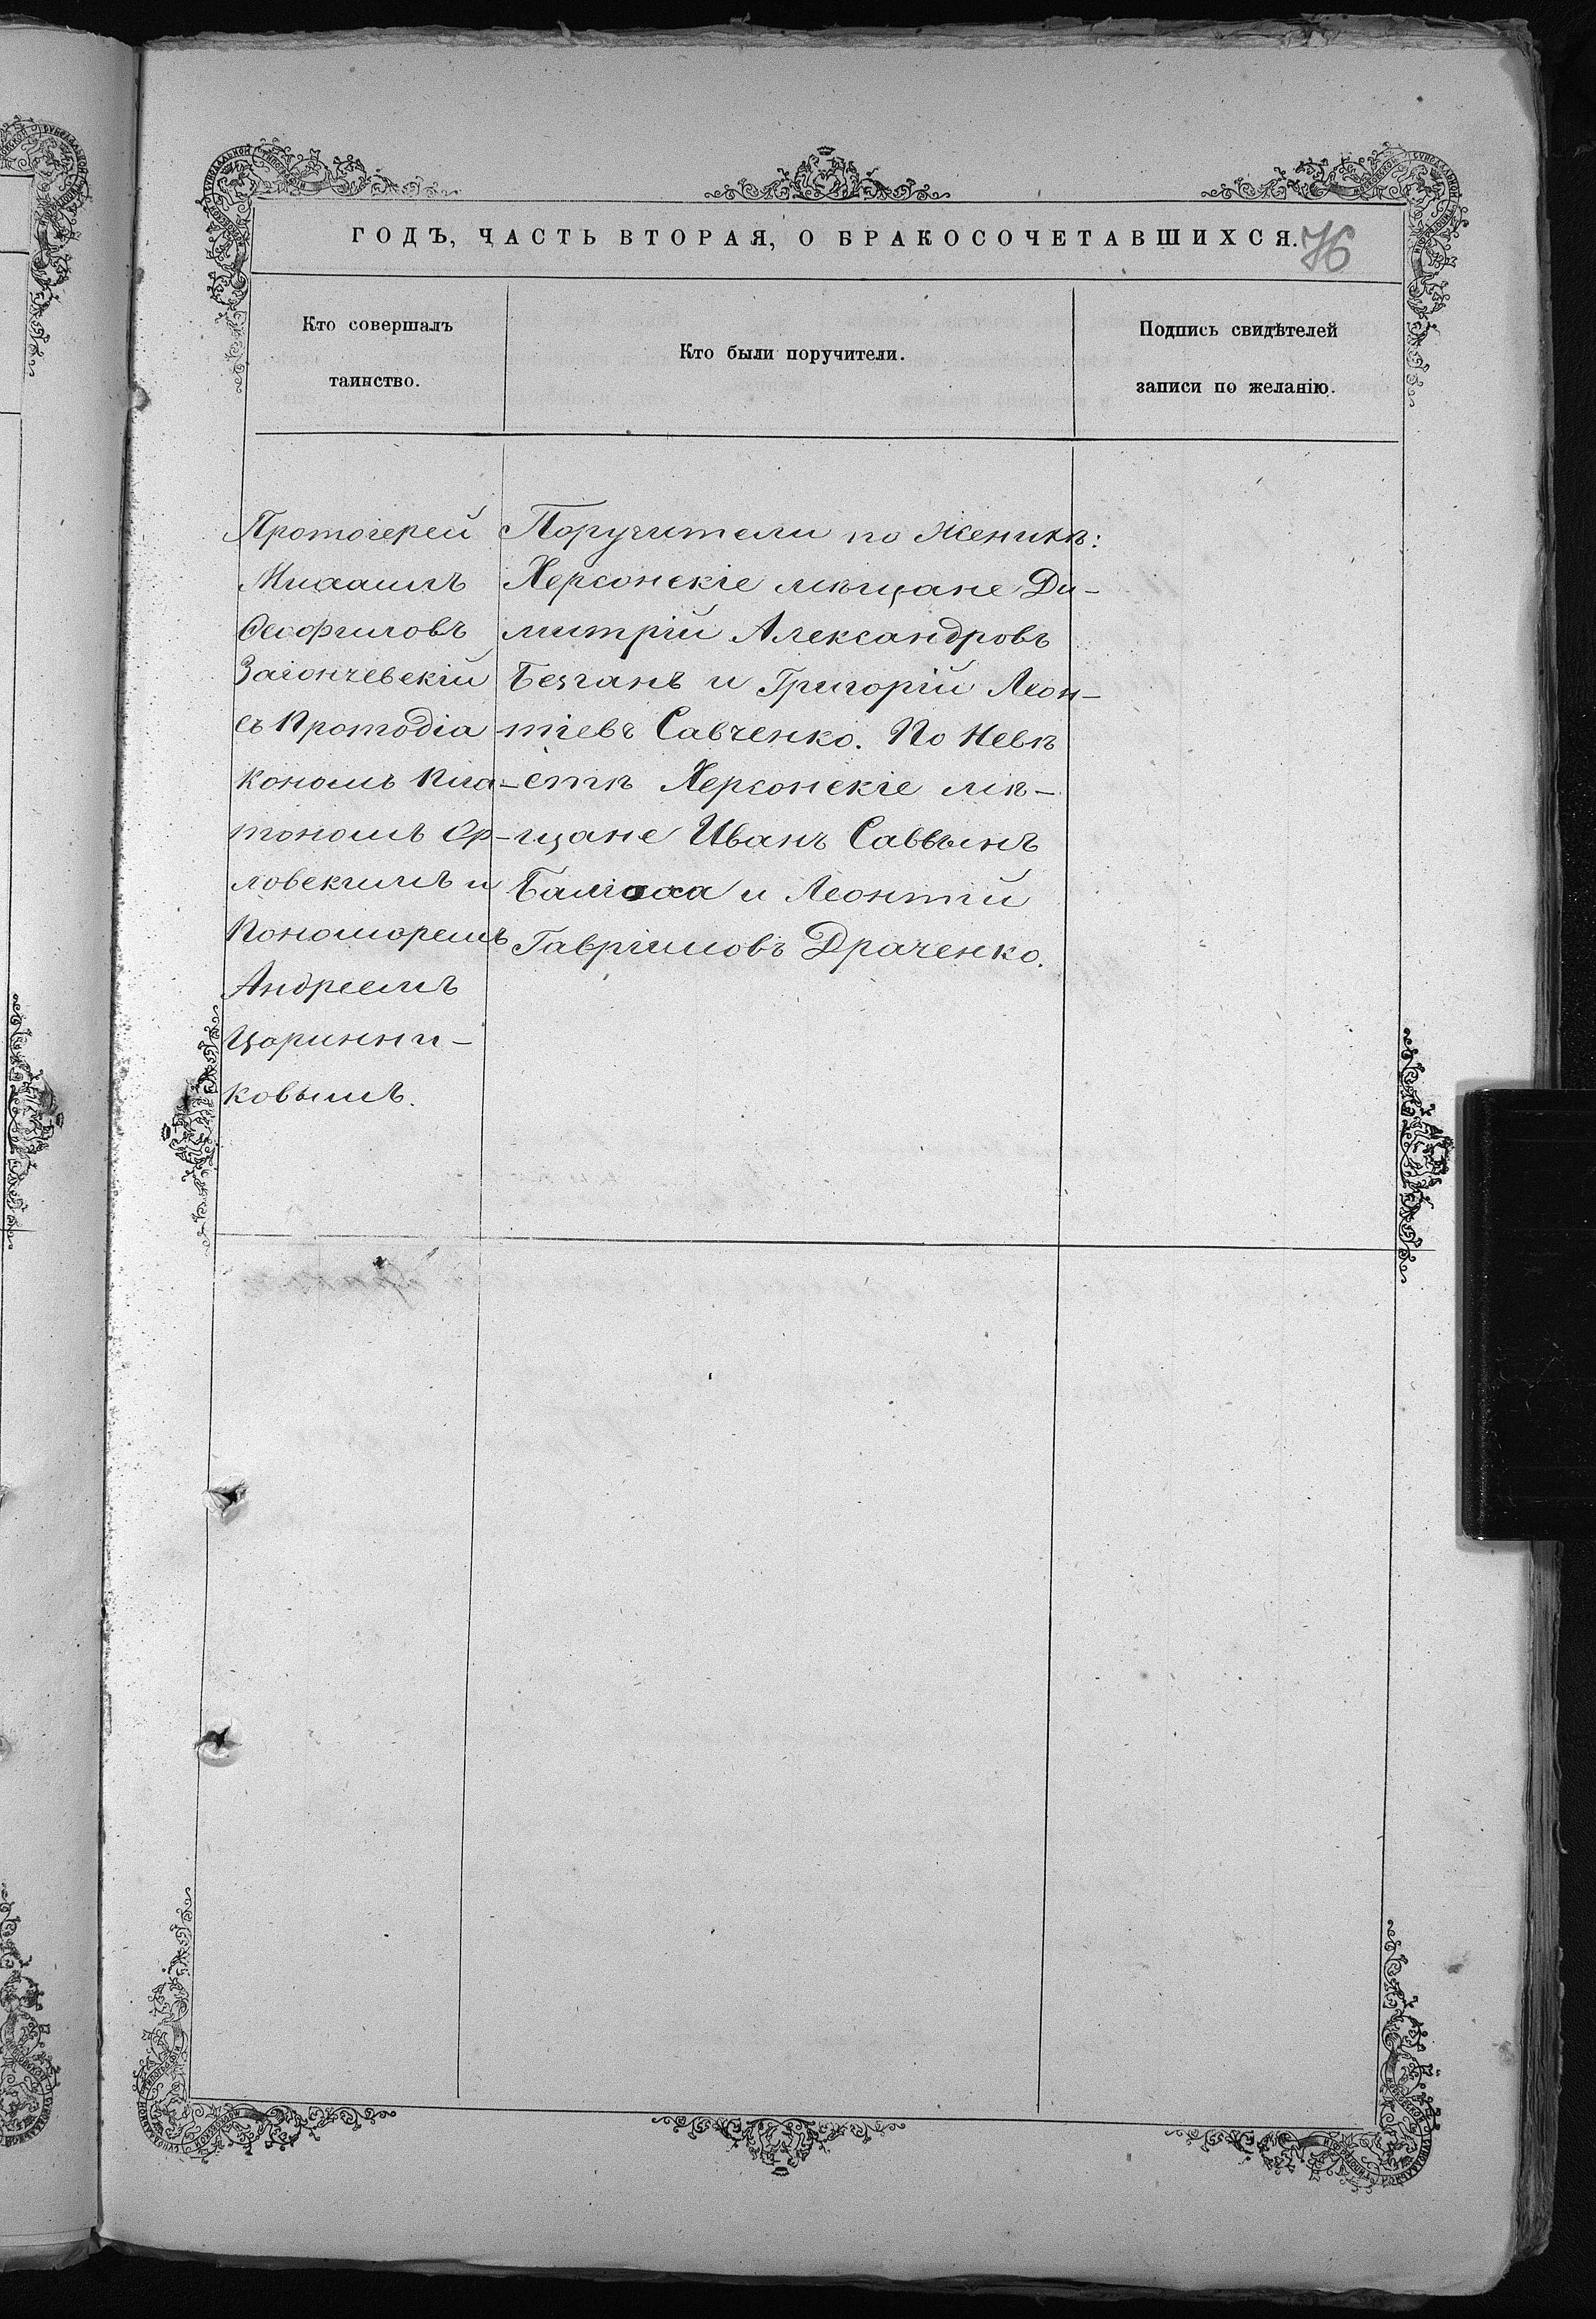 ГОДЪ, ЧАСТЬ ВТОРАЯ, О БРАКОСОЧЕТАВШИХСЯ.
76
Кто совершалъ
таинство.
Кто были поручители.
Подпись свидѣтелей
записи по желанію.
Протоіерей
Михаилъ
Ѳеофиловъ
Загончевскій
съ Протодіа
кономъ Пла-
тономъ Ор-
ловскимъ и
Пономоремъ
Андреемъ
Царинни-
ковымъ.
Поручители по Женихѣ:
Херсонскіе мѣщане Ди-
митрій Александровъ
Безганъ и Григорій Леон-
тіевъ Савченко. По Невѣ
стѣ Херсонскіе мѣ-
щане Иванъ Саввынъ
и Леонтій
Гавріиловъ Драченко.